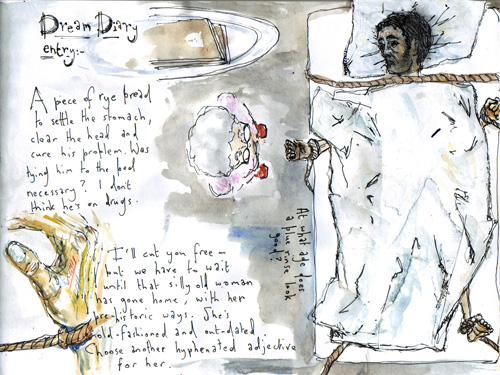 Dream Diary
entry:-
A piece of rye bread
to settle the stomach,
clear the head and
cure his problem. Was
tying him to the bed
necessary? I dont
think he's on drugs.
At what age does
a blue rinse look
good?
I'll cut you free –
but we have to wait
until that silly old woman
has gone home, with her
pre-historic ways. She's
old-fashioned and out-dated.
Choose another hyphenated adjective
for her.